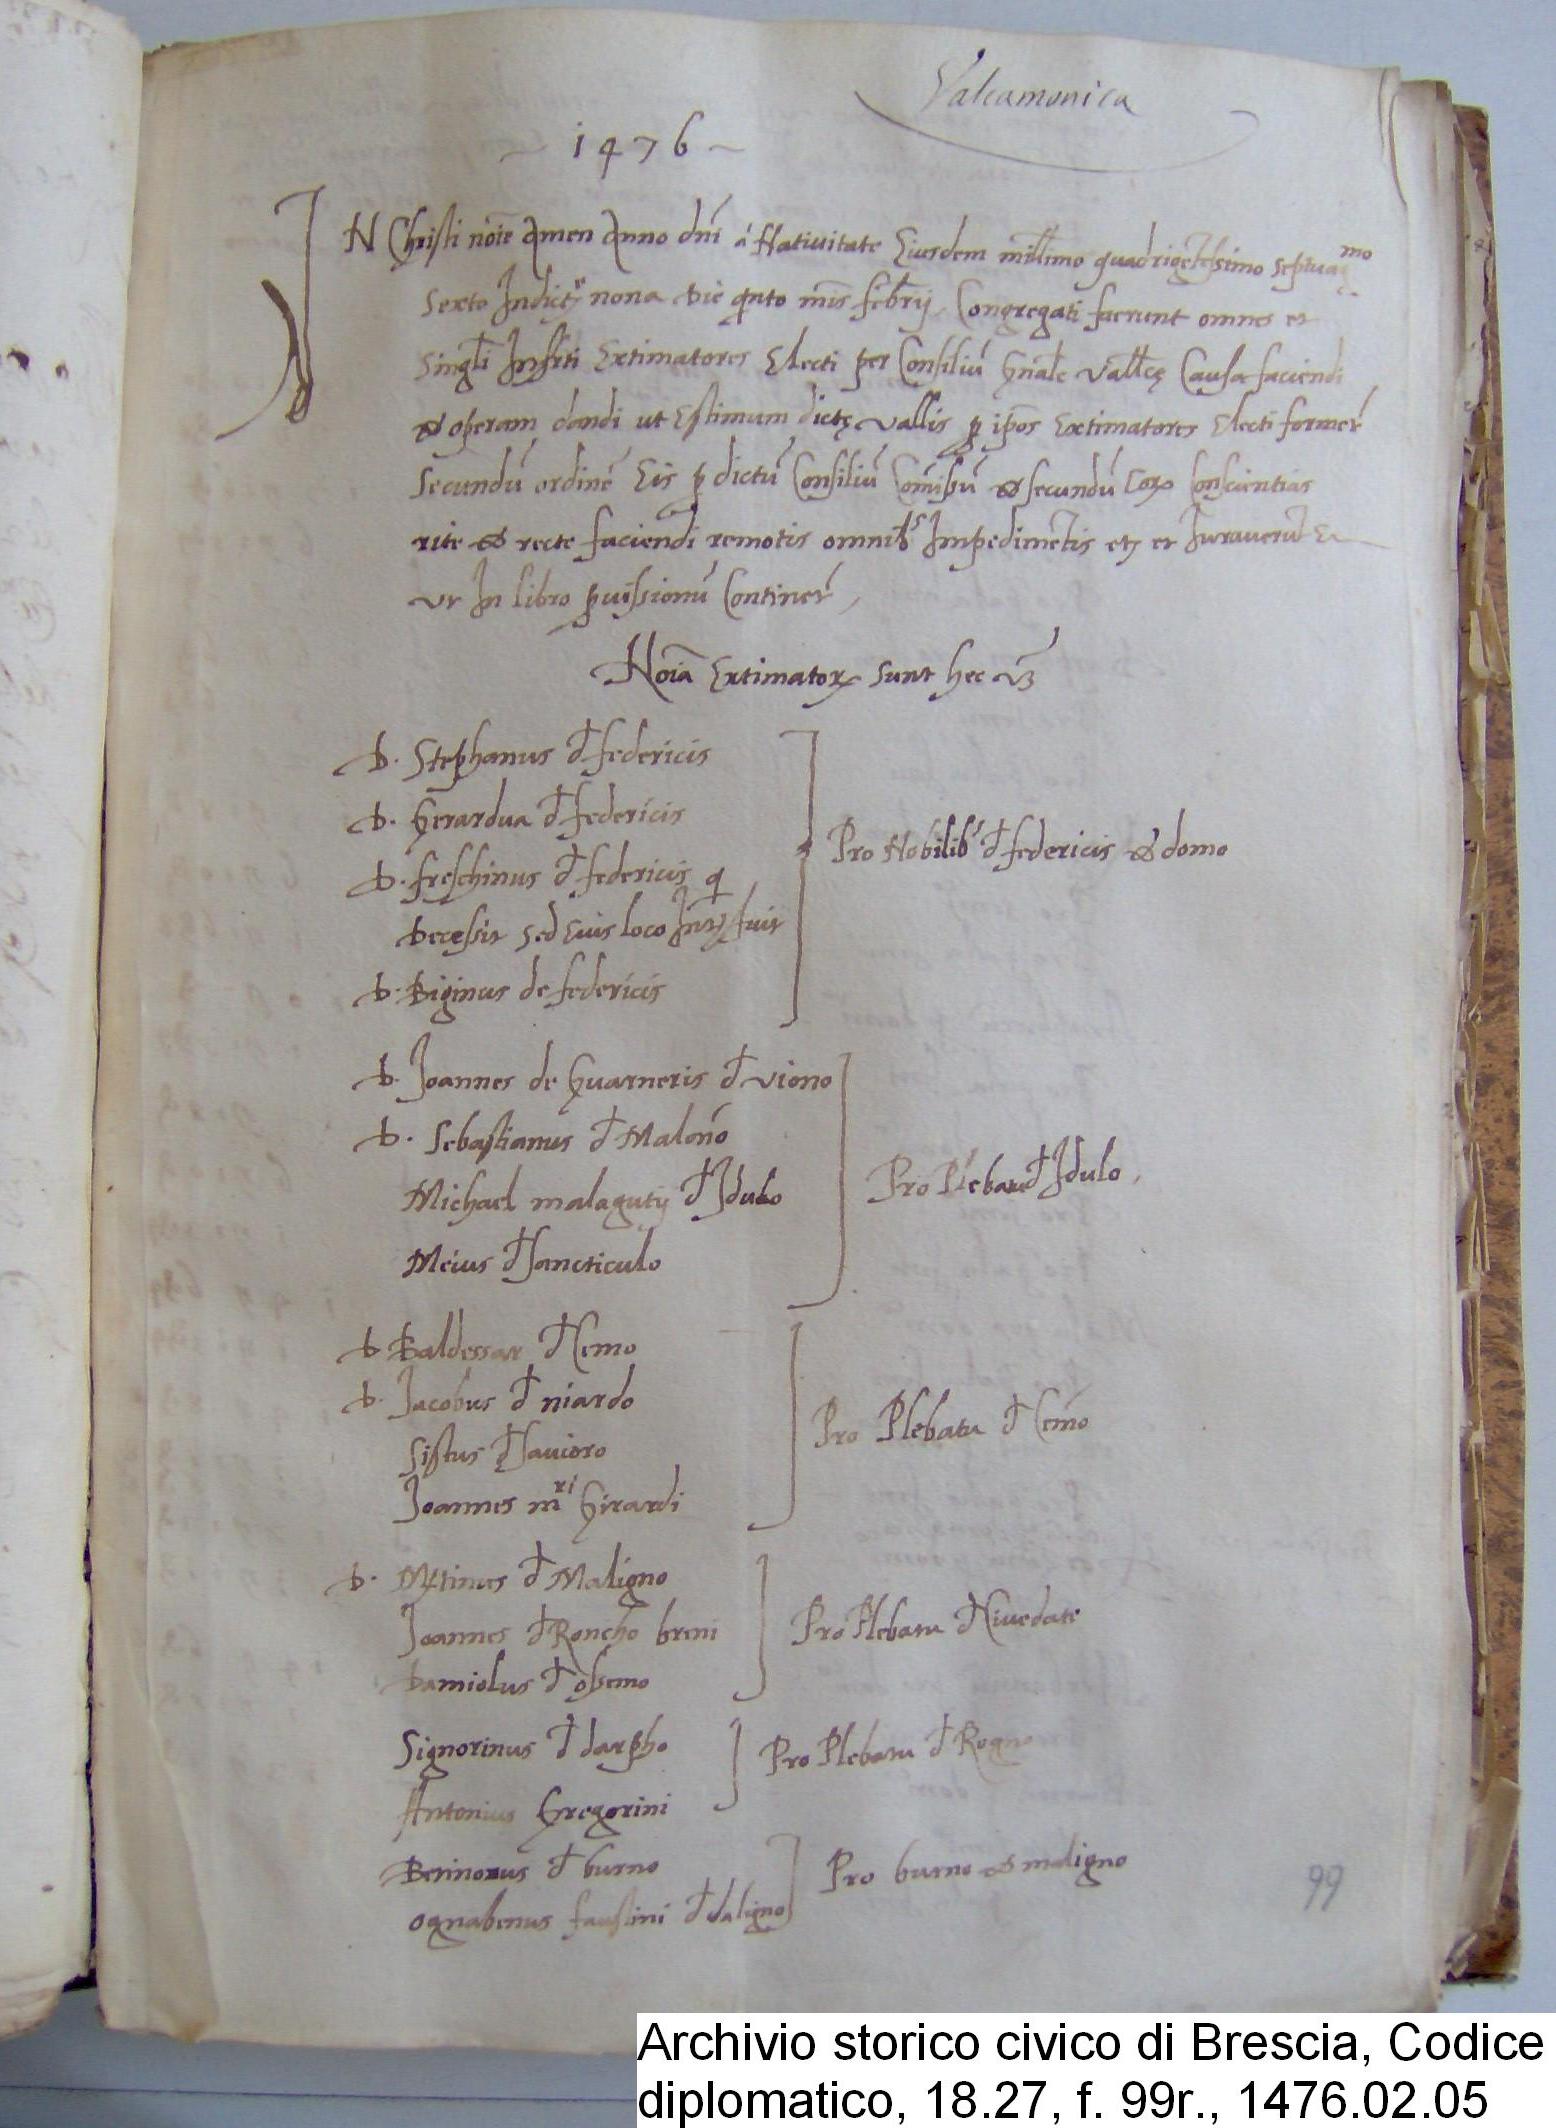 Valcamonica
~ 1476 ~
IN Christi noīe Amen Anno dnī á Natiuitate Eiusdem millimo quadrigetēsimo septuag mo
Sexto Indictē nona Die qnto mis febrij, Congregati fuerunt omnes et
Singli Infrti Extimatores Electi per Consiliū Gnāle Vallcę Causa faciendi
& operam dandi ut Estimum dictę Vallis p ipōs Extimatores Electi former̄
Secundū ordinē Eis p dictū Consiliū & secundū Conscientias
rite & recte faciendi remotis omnibs Impedimētis et Iurauerūt
Vt In libro puisionū Continer̄,
Noīa Extimator sunt hec Vz
D. Stephanus d federicis
D. Gerardua d federicis
D. freschinus d federicis q
Decessit sed Eius loco fuit
D. Biginus de federicis
Pro Nobilib' d federicis & domo
D. Joannes de Guarneris d Viono
D. Sebastianus d Malōno
Michael malagutij d Idulo
Meius d sancticulo
Pro Plebatu d Idulo,
D Baldessar d Cemo
D. Jacobus d niardo
Sistus d sauioro
Joannes mri Girardi
Pro Plebatu d Cemo
D. Mtinus d Maligno
Joannes d Roncho breni
Damiolus d ossemo
Pro Plebatu d Ciuedate
Signorinus d darpho
Antonius Gregorini
Pro Plebatu d Rogno
d burno
ognabenus faustini d daligno
Pro burno & maligno
99
Archivio storico civico di Brescia, Codice
diplomatico, 18.27, f. 99r., 1476.02.05